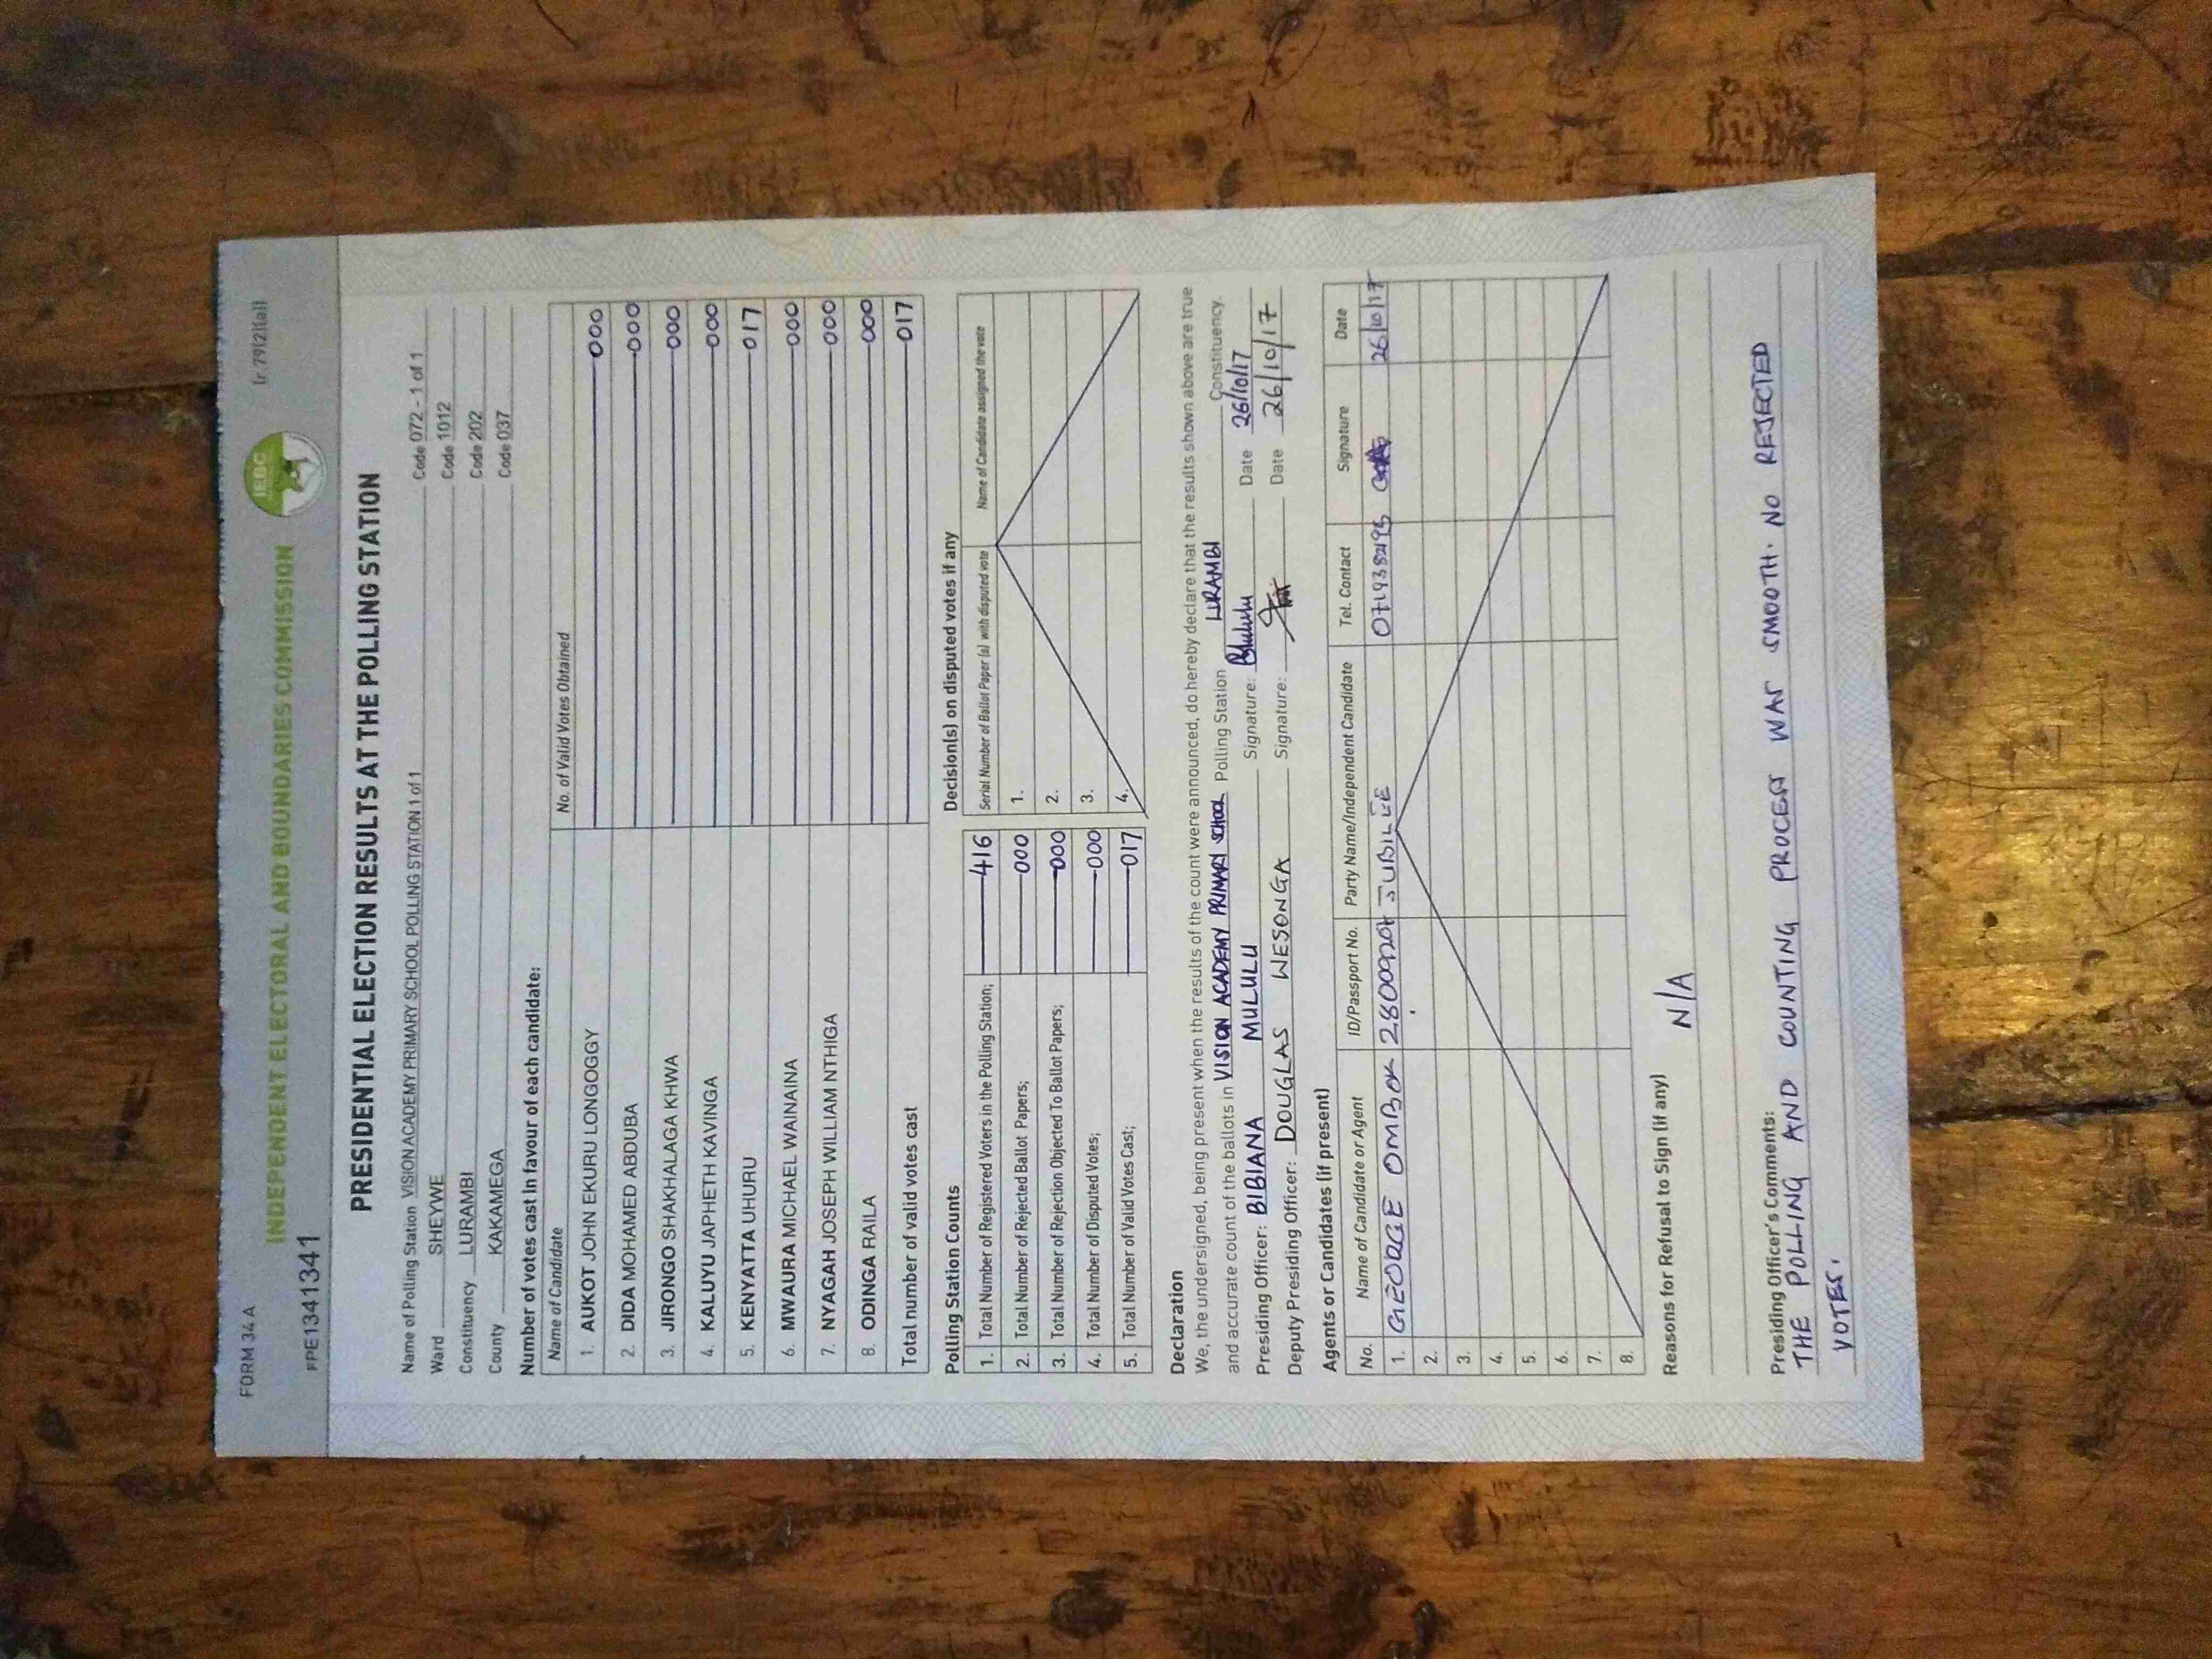 FORM 34 A
(r.79(2)(a))
INDEPENDENT ELECTORAL AND BOUNDARIES COMMISSION
IEBC
FPE1341341
PRESIDENTIAL ELECTION RESULTS AT THE POLLING STATION
Name of Polling Station VISION ACADEMY PRIMARY SCHOOL POLLING STATION 1 of 1 Code 072 - 1 of 1
Ward SHEYWE Code 1012
Constituency LURAMBI Code 202
County KAKAMEGA Code 037
Number of votes cast in favour of each candidate:
Name of Candidate No. of Valid Votes Obtained
1. AUKOT JOHN EKURU LONGOGGY 000
2. DIDA MOHAMED ABDUBA 000
3. JIRONGO SHAKHALAGA KHWA 000
4. KALUYU JAPHETH KAVINGA 000
5. KENYATTA UHURU 017
6. MWAURA MICHAEL WAINAINA 000
7. NYAGAH JOSEPH WILLIAM NTHIGA 000
8. ODINGA RAILA 000
Total number of valid votes cast 017
Polling Station Counts
1. Total Number of Registered Voters in the Polling Station; 416
2. Total Number of Rejected Ballot Papers; 000
3. Total Number of Rejection Objected To Ballot Papers; 000
4. Total Number of Disputed Votes; 000
5. Total Number of Valid Votes Cast; 017
Decision(s) on disputed votes if any
Serial Number of Ballot Paper (s) with disputed vote Name of Candidate assigned the vote
1.
2.
3.
4.
Declaration
We, the undersigned, being present when the results of the count were announced, do hereby declare that the results shown above are true
and accurate count of the ballots in VISION ACADEMY PRIMARY SCHOOL Polling Station LURAMBI Constituency.
Presiding Officer: BIBIANA MULULU Signature: Date 26/10/17
Deputy Presiding Officer: DOUGLAS WESONGA Signature: Date 26/10/17
Agents or Candidates (if present)
No. Name of Candidate or Agent ID/Passport No. Party Name/Independent Candidate Tel. Contact Signature Date
1. GEORGE OMBOK JUBILEE 26/10/17
2.
3.
4.
5.
6.
7.
8.
Reasons for Refusal to Sign (if any)
N/A
Presiding Officer's Comments:
THE POLLING AND COUNTING PROCESS WAS SMOOTH. NO REJECTED
VOTES.